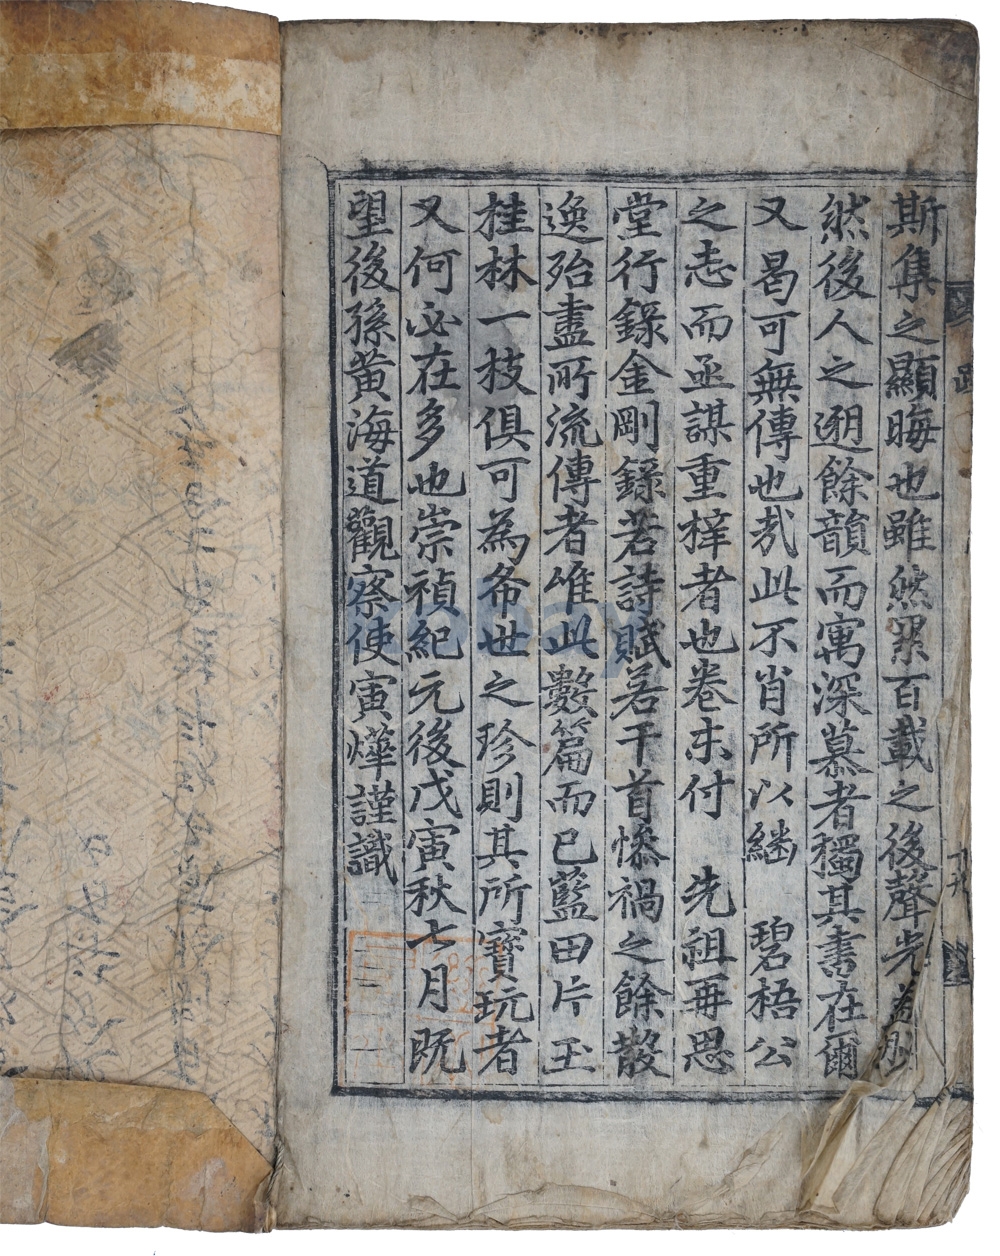 斯集之顯晦也雖然累百載之後聲光益彰
然後人之遡餘韻而寓深慕者獨其書在爾
又曷可無傳也哉此不肖所以繼 碧梧公
之志而亟謀重梓者也卷末付 先祖再思
堂行錄金剛錄若詩賦若干首慘禍之餘散
逸殆盡所流傳者惟此數篇而已藍田片玉
桂林一枝俱可為希世之珍則其所寶玩者
又何必在多也崇禎紀元後戊寅秋七月既
望後孫黄海道觀察使寅燁謹識